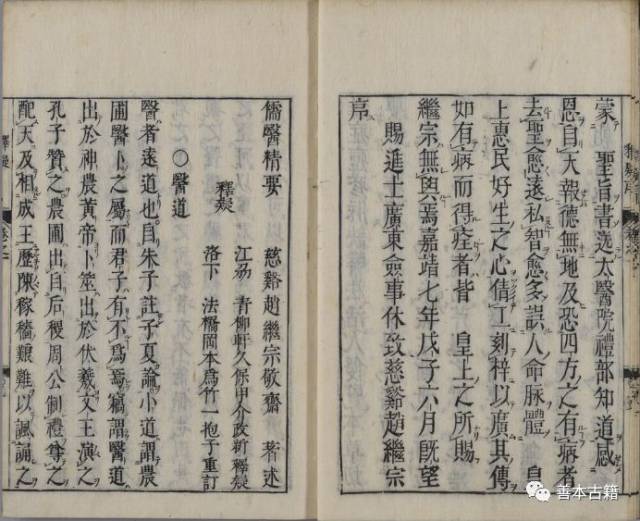 蒙 聖旨書送太醫院禮部知道感
恩自天報德無地及恐四方之有病者
去聖愈遠私智愈多誤人命脉體 皇
上惠民好生之心倩工刻梓以廣其傳
如有病而得痊者皆 皇上之所賜
繼宗無與焉嘉靖七年戊子六月既望
賜進士廣東僉事休致慈谿趙繼宗
序
儒醫精要 慈谿趙繼宗敬齋 著述
釋疑
江刕 青柳軒久保甲介政新釋疑
洛下 法橋岡本爲竹一抱子重訂
○醫道
醫者遠道也自朱子註子夏論小道謂農
圃醫卜之屬而君子有不爲焉竊謂醫道
出於神農黃帝卜筮出於伏羲文王演之
孔子贊之農圃出自后稷周公制禮尊之
配天及相成王歷陳稼穡艱難以諷誦之
善本古籍